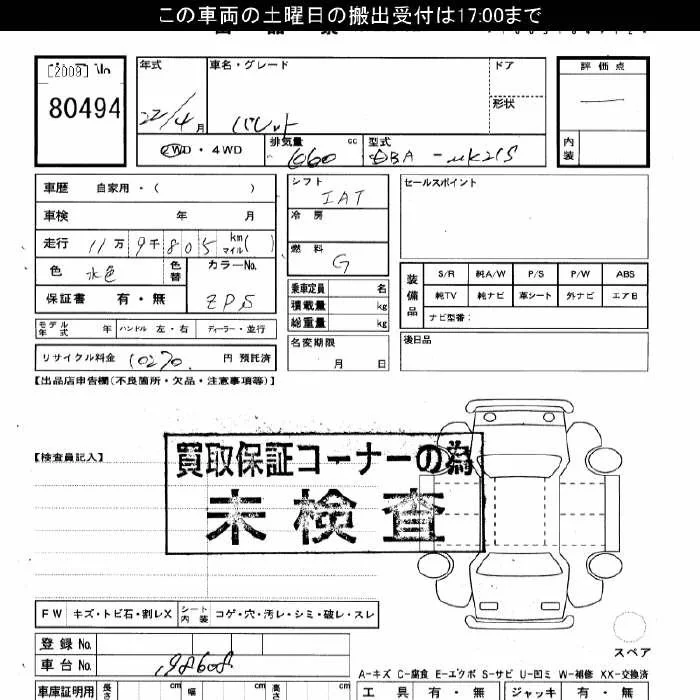 この車両の土曜日の搬出受付は17:00まで
[2009] No
80494
年式
22/4 月
車名・グレード
パレット
ドア
形状
評価点
—
内装
2WD ・ 4WD
排気量 660 cc
型式 DBA - MK21S
車歴 自家用・( )
車検 年 月
走行 11万 9千 805 km マイル ( )
色 水色 色替
カラーNo. ZPS
保証書 有・無
シフト IAT
冷房
燃料 G
乗車定員 名
積載量 kg
総重量 kg
セールスポイント
装備品
S/R 純A/W P/S P/W ABS
純TV 純ナビ 革シート 外ナビ エアB
ナビ型番:
モデル年式 年 ハンドル 左・右 ディーラー・並行
リサイクル料金 10270 円 預託済
名変期限
月 日
後日品
【出品店申告欄(不良箇所・欠品・注意事項等)】
【検査員記入】
買取保証コーナーの為
未検査
FW キズ・トビ石・割レX シート内装 コゲ・穴・汚レ・シミ・破レ・スレ
スペア
登録No.
車台No. 198608
A-キズ C-腐食 E-エクボ S-サビ U-凹ミ W-補修 XX-交換済
車庫証明用 長さ cm 幅 cm 高さ cm
工具 有・無 ジャッキ 有・無